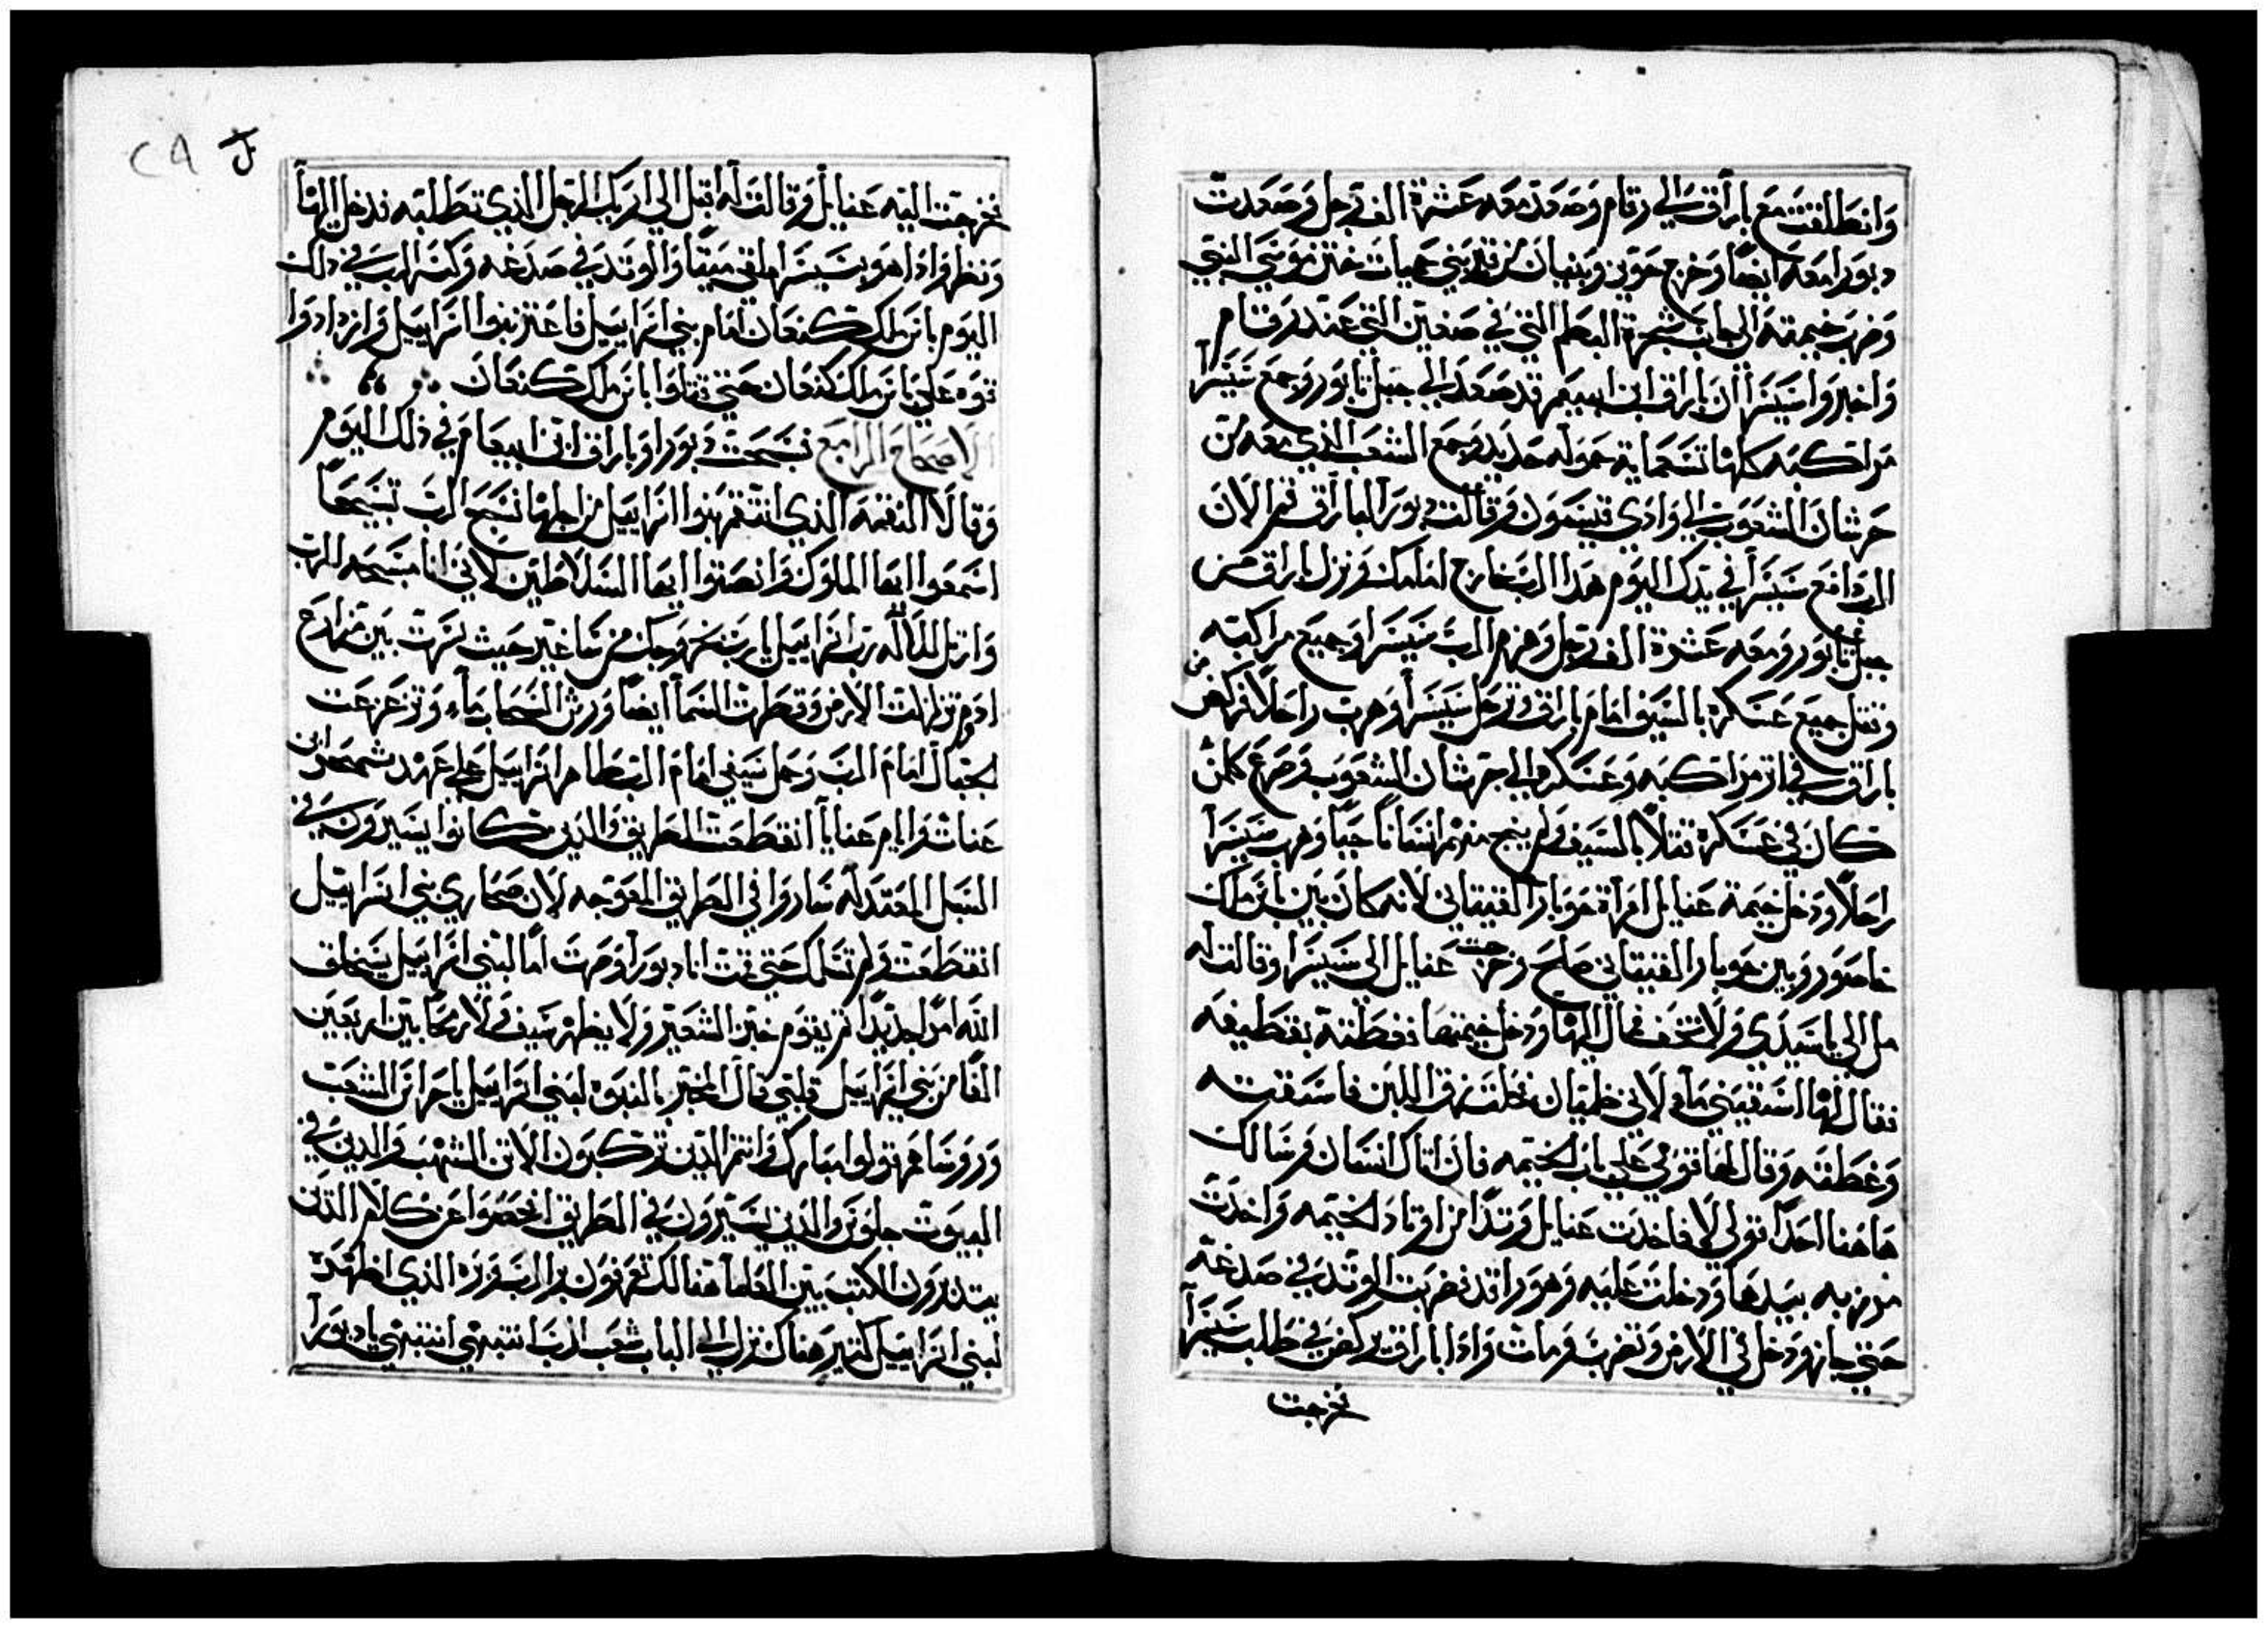 وانطلقت مع باراق الي رقام وصعد معه عشرة الف رجل وصعدت
دبورا معه ايضا وخرج حوبر وبنيان من قرير بني حميات ختن موسي النبي
وضرب خيمته الي جانب شجرة البطم التي في صنعين التي عند رقام
واخبروا سيسرا ان باراق ابن ابينعم قد صعد الي جبل تابور وجمع سيسرا
مراكبه كلها تسعماية حوله حديد وجمع الشعب الذي معه من
حرشان الشعوب الي وادي قيسون وقالت دبورا لباراق قم الان
الرب دافع سيسرا في يدك اليوم هذا الرب خارج امامك ونزل باراق من
جبل تابور ومعه عشرة الف رجل وهزم الرب سيسرا وجميع مراكبه
وقتل جميع عسكره بالسيف امام باراق وترجل سيسرا وهرب راجلا فركض من
باراق في اثر مراكبه وعسكره الي حرشان الشعوب فصرع كلمن
كان في عسكره قتلا بالسيف ولم ينج منهم انسانا حيا وهرب سيسرا
راجلا ودخل خيمة عنايل امراة حوبار القيناني لانه كان بين يابن ملك
حاصور وبين حوبار القيناني صلح وخرجت عنايل الي سيسرا وقالت له
مل الي يا سيدي ولا تخف فمال اليها ودخل خيمتها فغطته بقطيفه
فقال لها اسقيني ماء لاني ظميان فحلت زق اللبن فاسقته
وغطته وقال لها قومي علي باب الخيمه فان اتاك انسان وسالك
هاهنا احدا قولي لا فاخذت عنايل وتدا من اوتاد الخيمه واخذت
مرزبه بيدها ودخلت عليه وهو راقد فضربت الوتد في صدغه
حتي جاز ودخل في الارض وتضرب ومات واذا باراق يركض في طلب سيسرا
فخرجت
فخرجت اليه عنايل وقالت له اقبل الي اريك الرجل الذي تطلبه فدخل اليها
ونظر واذا هو بسيسرا ملقي ميتا والوتد في صدغه وكسر الرب في ذلك
اليوم يابن ملك كنعان امام بني اسراييل فاعتز بنوا اسراييل وازدادوا
قوه علي يابن ملك كنعان حتي قتلوا يابن ملك كنعان
الاصحاح الرابع فسبحت دبورا وباراق ابن ابينعام في ذلك اليوم
وقالا النقمه الذي انتقم بنوا اسراييل من اجلها نسبح الرب تسبيحا
اسمعوا ايها الملوك وانصتوا ايها السلاطين لاني انا مسبحه للرب
وارتل للاله رب اسراييل يارب بخروجك من ساعير حيث سرت بين مزارع
ادوم تزلزلت الارض وقطرت السما ايضا ورش السحاب ماء وتزعزعت
الجبال امام الرب وجبل سيني امام الرب اله اسراييل علي عهد شمحر ابن
عنات وايام عنايا انقطعت الطريق والذين كانوا يسيرون في
السبل المعتدله ساروا في الطريق المعوجه لان صحاري بني اسراييل
انقطعت ولم تسلك حتي قمت انا دبورا وصرت اما لبني اسراييل يخلق
الله امرا جديدا ثم يقوم خبز الشعير ولا يظهر سيف ولا رمحا بين اربعين
الفا من بني اسراييل قلبي قال الخبر بالنبوه لبني اسراييل يا حراس الشعب
وروساهم قولوا مبارك وانتم الذين تركبون الاتن الشهب والذين في
البيوت جلوس والذين يسيرون في الطريق افحصوا عن كلام الذين
يتدبرون الكتب بين العلما هنالك تعرفون بر الرب وبره الذي اظهره
لبني اسراييل كتير هناك نزل الي الباب شعب الرب انتبهي انتبهي يا دبورا